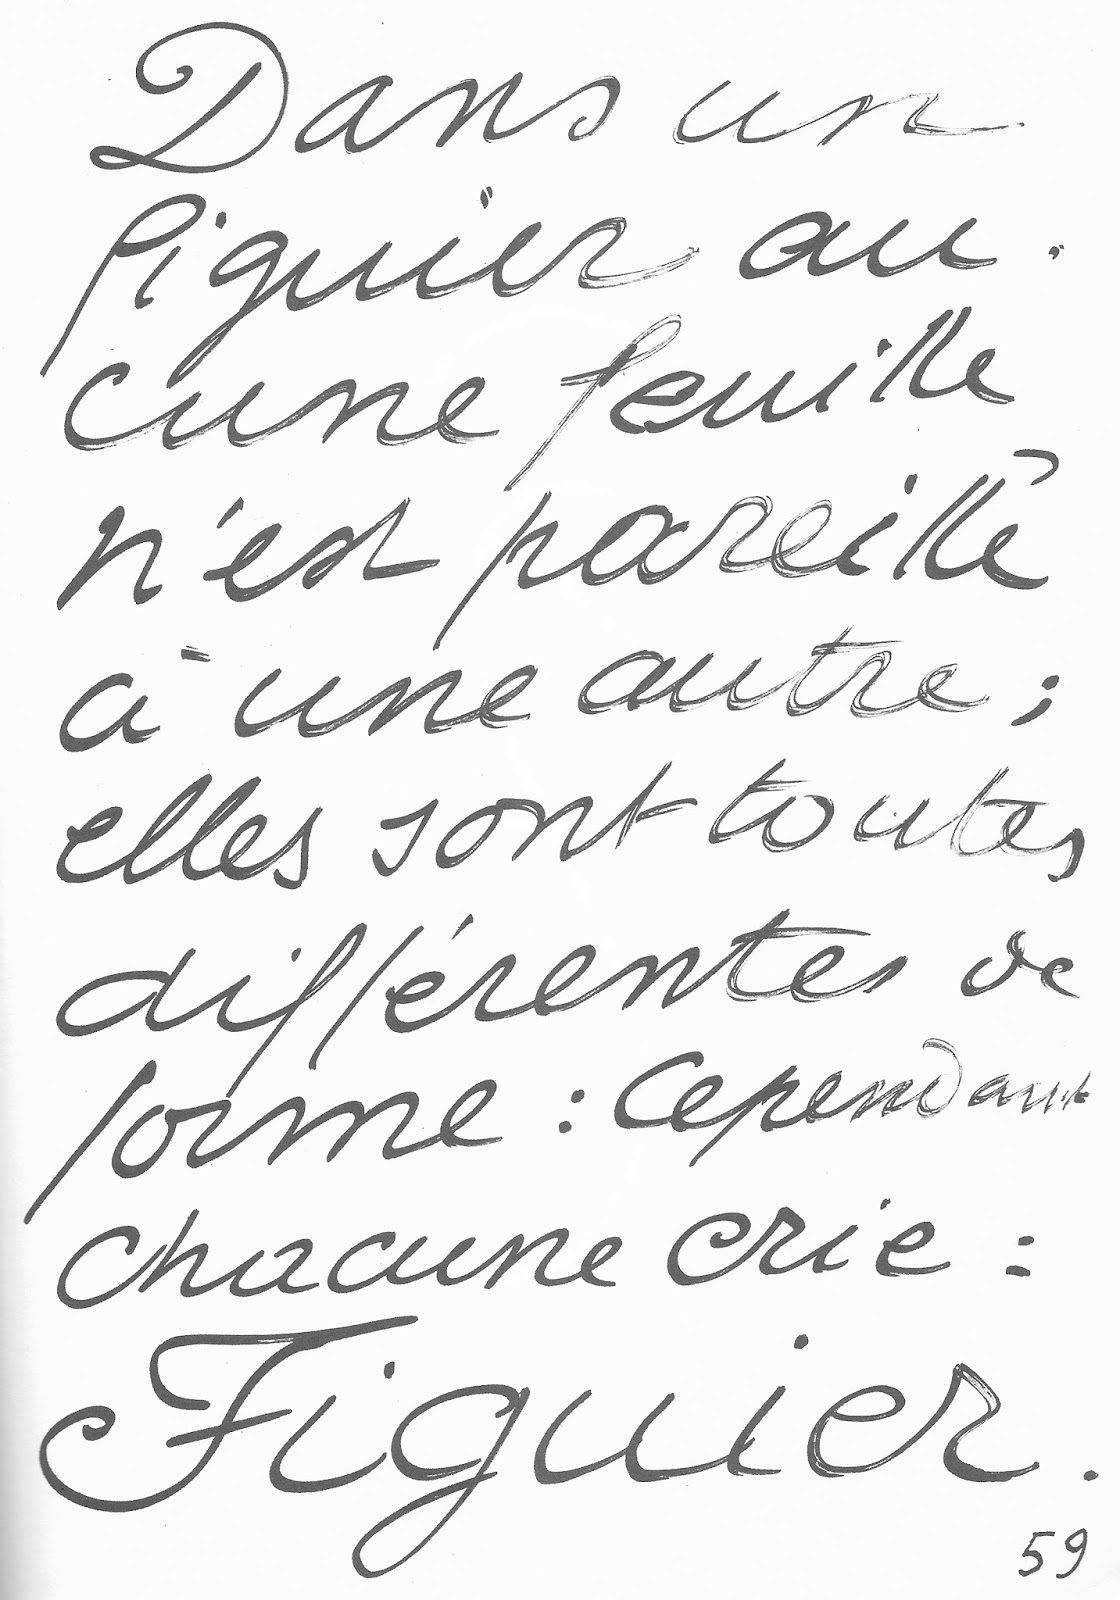 Dans un
figuier au.
cune feuille
n'est pareille
à une autre ;
elles sont toutes
différentes de
forme : cependant
chacune crie :
Figuier.
59